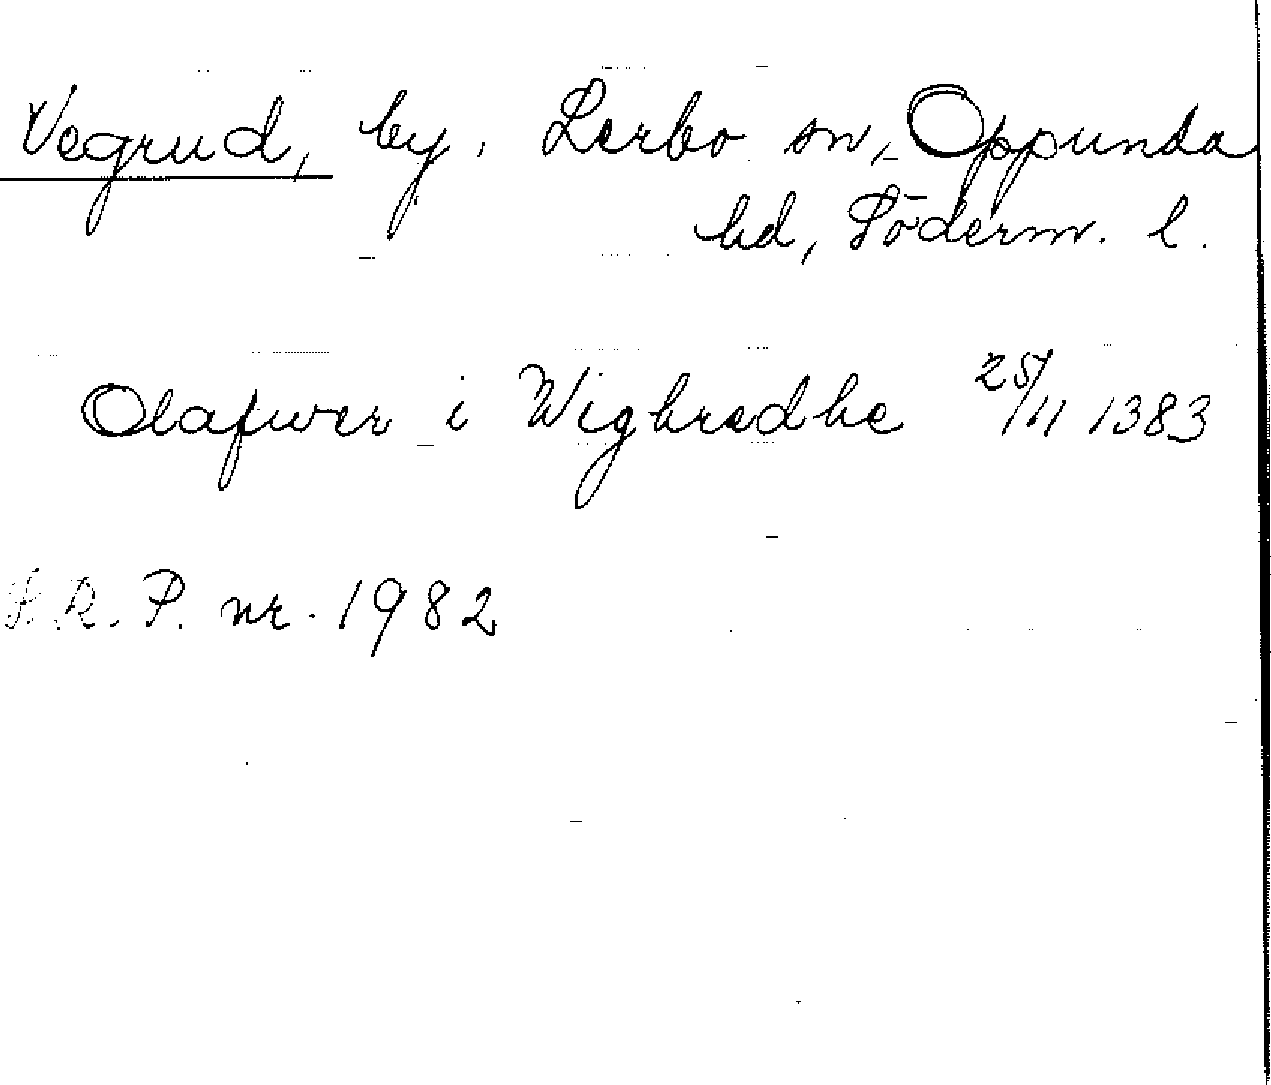 Vegrud, by, Lerbo sn, Oppunda
hd, Söderm. l.
Olafwer i Wighredhe 25/11 1383
S.R.P. nr. 1982